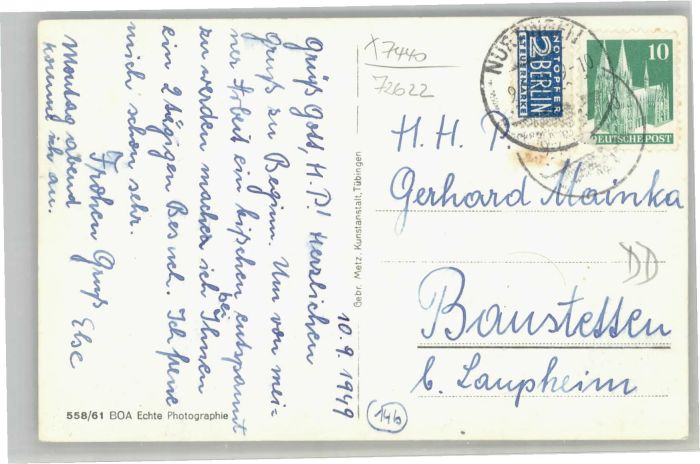 10.9.1949
Grüß Gott, H. P.! Herzlichen
Gruß zu Beginn. Um von mei-
ner Arbeit ein bißchen entspannt
zu werden mache ich bei Ihnen
ein 2tägigen Besuch. Ich freue
mich schon sehr.
Frohen Gruß Else
Montag abend
komme ich an.
558/61 BOA Echte Photographie
Gebr. Metz, Kunstanstalt, Tübingen
X7440
72622
NOTOPFER
2 BERLIN
STEUERMARKE
NÜRTINGEN
10
DEUTSCHE POST
H. H. P.
Gerhard Mainka
DD
Baustetten
b. Laupheim
14b